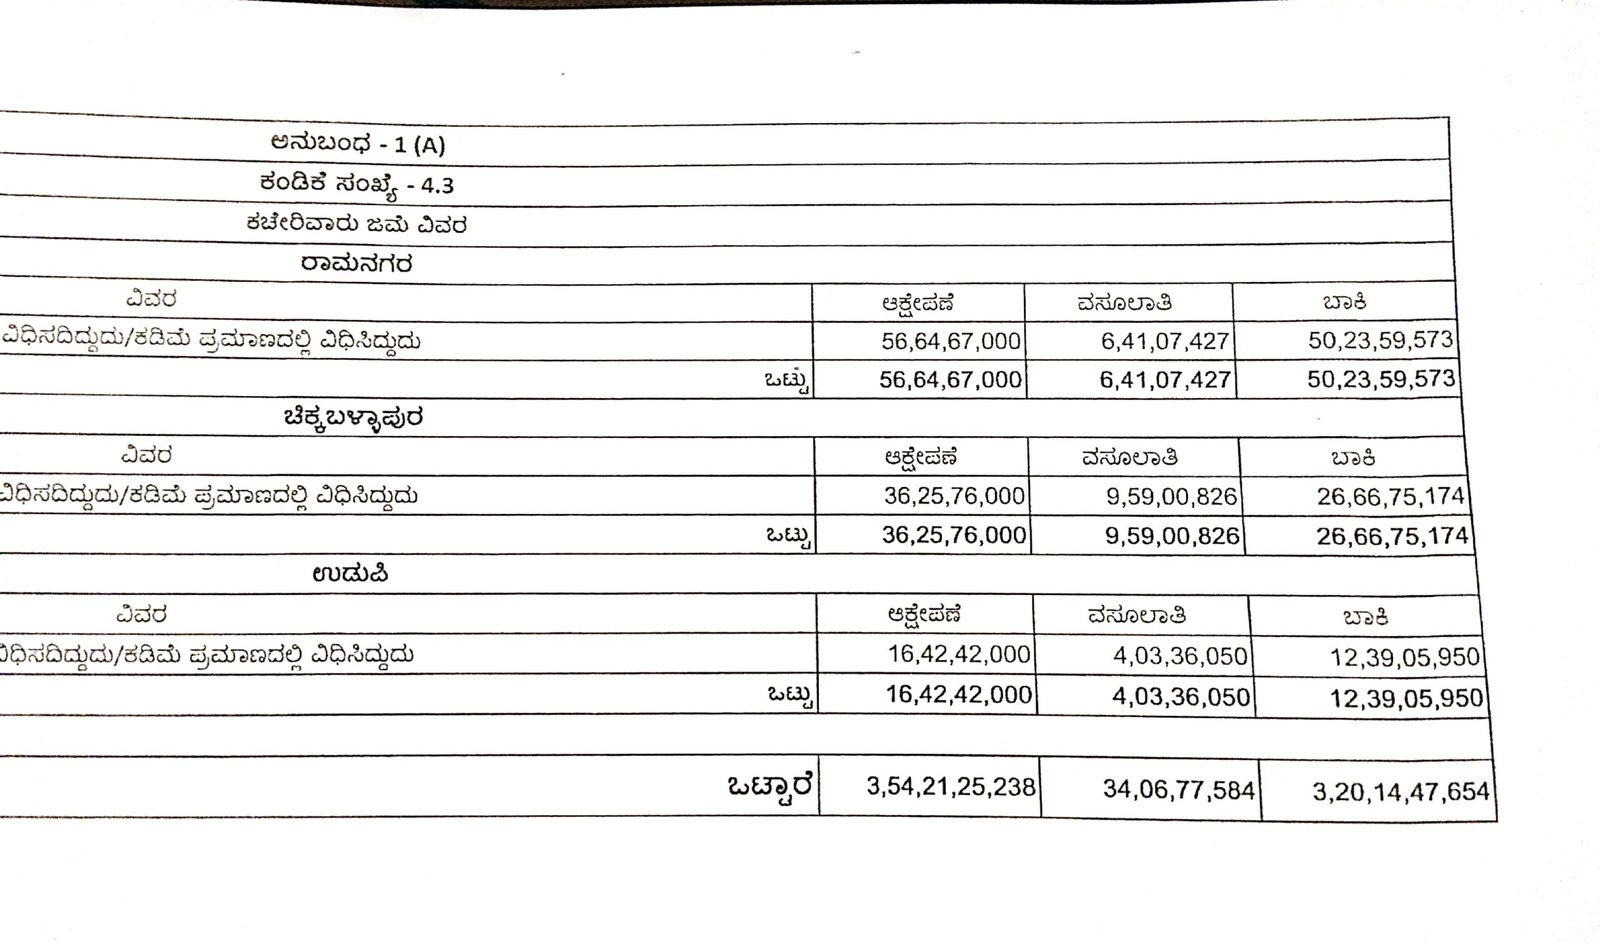 ಅನುಬಂಧ - 1 (A)
ಕಂಡಿಕೆ ಸಂಖ್ಯೆ - 4.3
ಕಚೇರಿವಾರು ಜಮೆ ವಿವರ
ರಾಮನಗರ
ವಿವರ ಆಕ್ಷೇಪಣೆ ವಸೂಲಾತಿ ಬಾಕಿ
ವಿಧಿಸದಿದ್ದುದು/ಕಡಿಮೆ ಪ್ರಮಾಣದಲ್ಲಿ ವಿಧಿಸಿದ್ದುದು 56,64,67,000 6,41,07,427 50,23,59,573
ಒಟ್ಟು 56,64,67,000 6,41,07,427 50,23,59,573
ಚಿಕ್ಕಬಳ್ಳಾಪುರ
ವಿವರ ಆಕ್ಷೇಪಣೆ ವಸೂಲಾತಿ ಬಾಕಿ
ವಿಧಿಸದಿದ್ದುದು/ಕಡಿಮೆ ಪ್ರಮಾಣದಲ್ಲಿ ವಿಧಿಸಿದ್ದುದು 36,25,76,000 9,59,00,826 26,66,75,174
ಒಟ್ಟು 36,25,76,000 9,59,00,826 26,66,75,174
ಉಡುಪಿ
ವಿವರ ಆಕ್ಷೇಪಣೆ ವಸೂಲಾತಿ ಬಾಕಿ
ವಿಧಿಸದಿದ್ದುದು/ಕಡಿಮೆ ಪ್ರಮಾಣದಲ್ಲಿ ವಿಧಿಸಿದ್ದುದು 16,42,42,000 4,03,36,050 12,39,05,950
ಒಟ್ಟು 16,42,42,000 4,03,36,050 12,39,05,950
ಒಟ್ಟಾರೆ 3,54,21,25,238 34,06,77,584 3,20,14,47,654